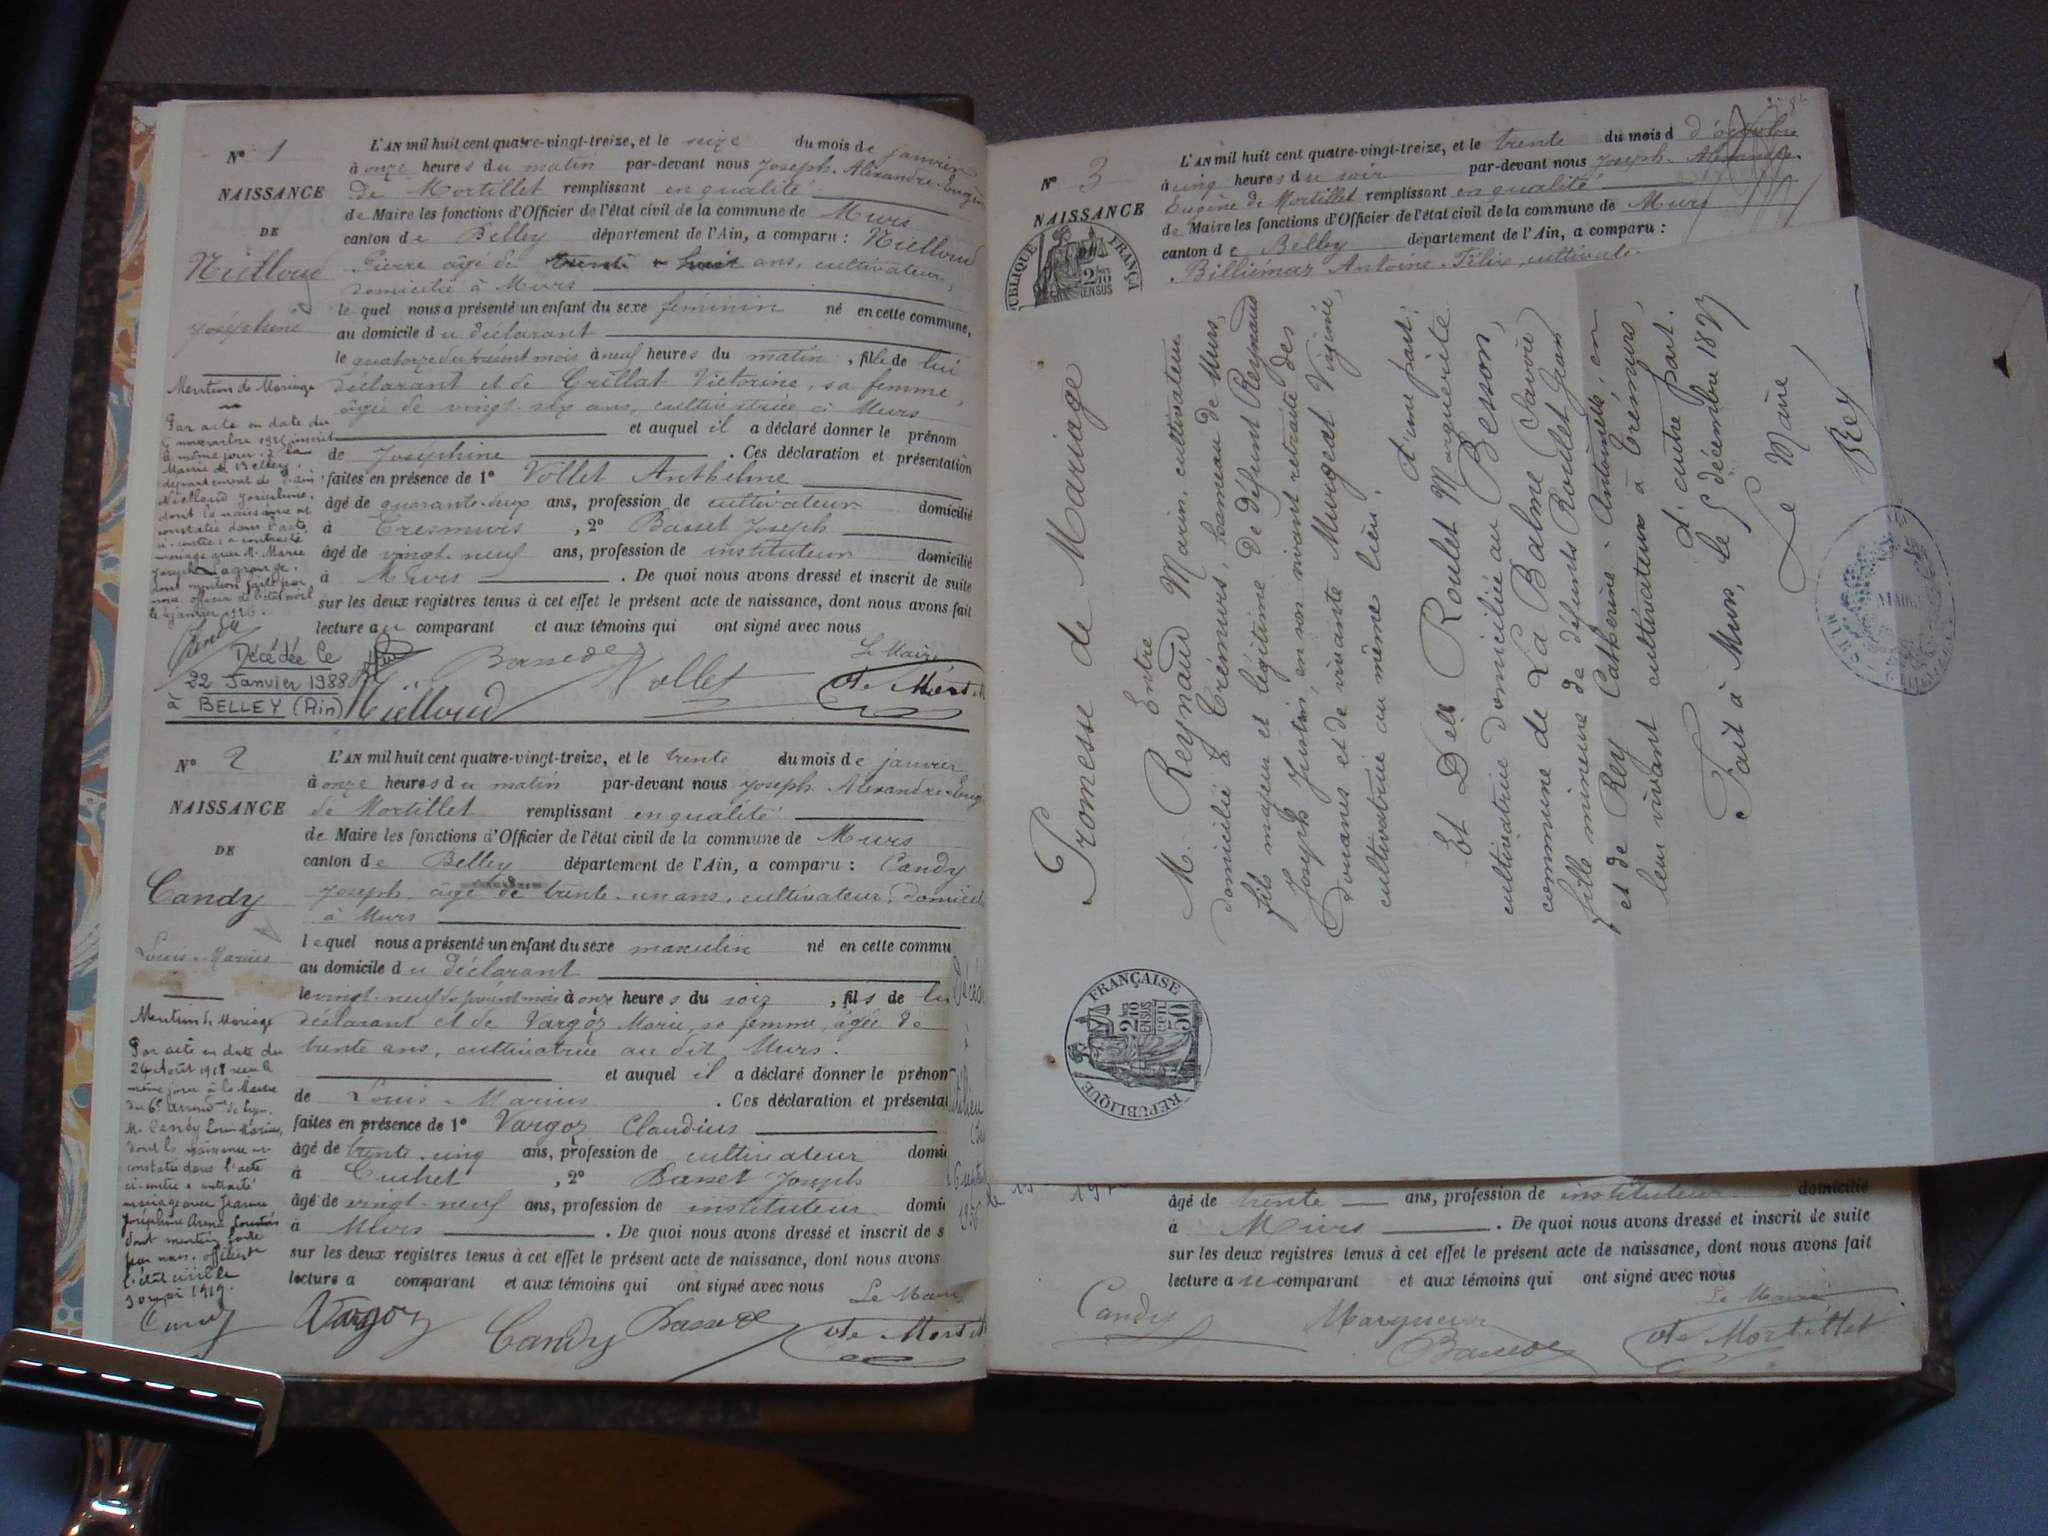 N° 1
NAISSANCE
DE
Nielloud
Joséphine
Mention de Mariage
Par acte en date du
novembre inscrit
le même jour à la
Mairie de Belley
département de l'Ain
Nielloud Joséphine
dont la naissance est
constatée dans l'acte
ci-contre, a contracté
mariage avec M. Marie
Joseph Lagrange.
dont mention faite par
nous officier de l'état civil
le janvier 1926.
Décédée le
22 Janvier 1988
à BELLEY (Ain)
L'AN mil huit cent quatre-vingt-treize, et le seize du mois de janvier
à onze heures du matin par-devant nous Joseph-Alexandre-Eugène
de Mortillet remplissant en qualité
de Maire les fonctions d'Officier de l'état civil de la commune de Murs
canton de Belley département de l'Ain, a comparu : Nielloud
Pierre âgé de trente-huit ans, cultivateur,
domicilié à Murs
lequel nous a présenté un enfant du sexe féminin né en cette commune,
au domicile du déclarant
le quatorze du présent mois à neuf heures du matin, fille de lui
déclarant et de Grillat Victorine, sa femme,
âgée de vingt-six ans, cultivatrice à Murs
et auquel il a déclaré donner le prénom
de Joséphine. Ces déclaration et présentation
faites en présence de 1° Vollet Anthelme
âgé de quarante-deux ans, profession de cultivateur domicilié
à Tresmurs, 2° Basset Joseph
âgé de vingt-neuf ans, profession de instituteur domicilié
à Murs. De quoi nous avons dressé et inscrit de suite
sur les deux registres tenus à cet effet le présent acte de naissance, dont nous avons fait
lecture au comparant et aux témoins qui ont signé avec nous
Le Maire
Nielloud Vollet de Mort
N° 2
NAISSANCE
DE
Candy
Louis-Marius
Mention de Mariage
Par acte en date du
24 Août 1918 reçu le
même jour à la Mairie
du 6e arrond.nt de Lyon
M. Candy Louis Marius,
dont la naissance est
constatée dans l'acte
ci-contre a contracté
mariage avec Jeanne
Joséphine
dont mention faite
par nous, officier de
l'état civil le
30 mai 1919.
L'AN mil huit cent quatre-vingt-treize, et le trente du mois de janvier
à onze heures du matin par-devant nous Joseph-Alexandre-Eug
de Mortillet remplissant en qualité
de Maire les fonctions d'Officier de l'état civil de la commune de Murs
canton de Belley département de l'Ain, a comparu : Candy
Joseph, âgé de trente-un ans, cultivateur, domicilié
à Murs
lequel nous a présenté un enfant du sexe masculin né en cette commu
au domicile du déclarant
le vingt-neuf du présent mois à onze heures du soir, fils de lui
déclarant et de Vargoz Marie, sa femme, âgée de
trente ans, cultivatrice au dit Murs.
et auquel il a déclaré donner le prénom
de Louis-Marius. Ces déclaration et présentat
faites en présence de 1° Vargoz Claudius
âgé de trente-cinq ans, profession de cultivateur domi
à Cuchet, 2° Basset Joseph
âgé de vingt-neuf ans, profession de instituteur domi
à Murs. De quoi nous avons dressé et inscrit de s
sur les deux registres tenus à cet effet le présent acte de naissance, dont nous avons
lecture a comparant et aux témoins qui ont signé avec nous
Le Maire
Vargoz Candy de Mort
N° 3
NAISSANCE
L'AN mil huit cent quatre-vingt-treize, et le trente du mois d'octobre
à cinq heures du soir par-devant nous Joseph-Alexandre
Eugène de Mortillet remplissant en qualité
de Maire les fonctions d'Officier de l'état civil de la commune de Murs
canton de Belley département de l'Ain, a comparu :
Billiémaz Antoine-Félix, cultivate
Promesse de Mariage
Entre
M. Reynaud Marin, cultivateur
domicilié à Trémurs, hameau de Murs,
fils majeur et légitime de défunt Reynaud
Joseph Justin, en son vivant retraité des
Douanes et de vivante Murgeat Virginie,
cultivatrice au même lieu, d'une part;
Et Delle Roulet Marguerite
cultivatrice domiciliée au Besson,
commune de La Balme (Savoie)
fille mineure de défunts Roullet Jean
et de Rey Catherine-Antoinette, en
leur vivant cultivateurs à Trémurs,
d'autre part.
Fait à Murs, le 5 décembre 1897
Le Maire
Rey
RÉPUBLIQUE FRANÇAISE
50 cent
2/10 EN SUS
âgé de trente ans, profession de instituteur domicilié
à Murs. De quoi nous avons dressé et inscrit de suite
sur les deux registres tenus à cet effet le présent acte de naissance, dont nous avons fait
lecture au comparant et aux témoins qui ont signé avec nous
Le Maire
Candy de Mortillet